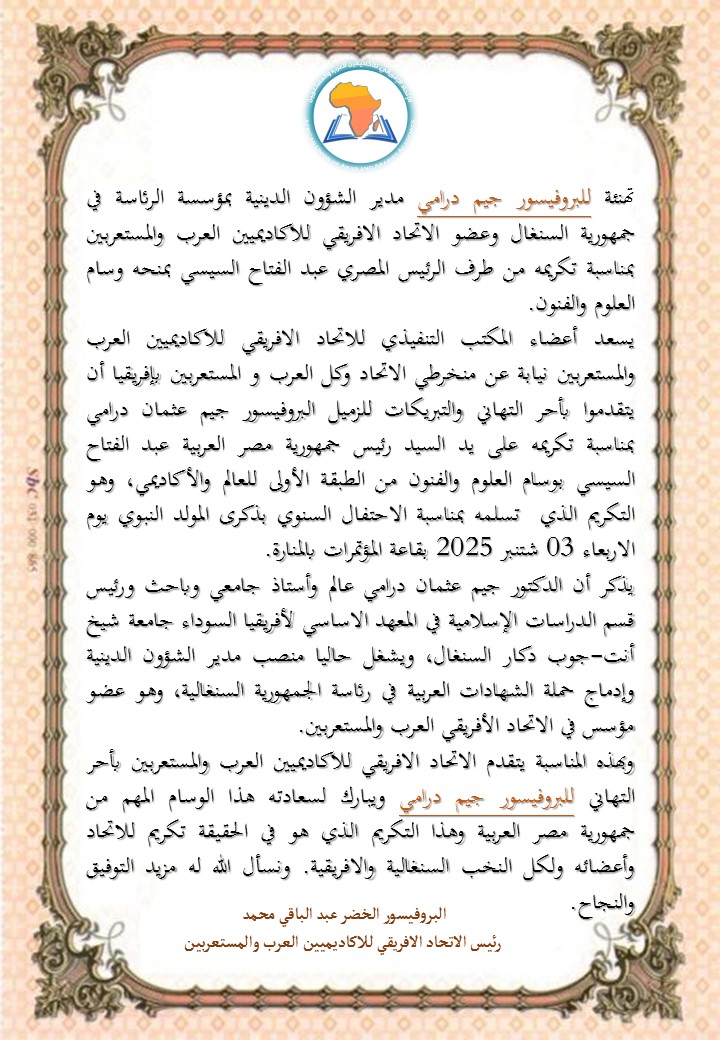 تهنئة للبروفيسور جيم درامي مدير الشؤون الدينية بمؤسسة الرئاسة في
جمهورية السنغال وعضو الاتحاد الافريقي للأكاديميين العرب والمستعربين
بمناسبة تكريمه من طرف الرئيس المصري عبد الفتاح السيسي بمنحه وسام
العلوم والفنون.
يسعد أعضاء المكتب التنفيذي للاتحاد الافريقي للاكاديميين العرب
والمستعربين نيابة عن منخرطي الاتحاد وكل العرب و المستعربين بإفريقيا أن
يتقدموا بأحر التهاني والتبريكات للزميل البروفيسور جيم عثمان درامي
بمناسبة تكريمه على يد السيد رئيس جمهورية مصر العربية عبد الفتاح
السيسي بوسام العلوم والفنون من الطبقة الأولى للعالم والأكاديمي، وهو
التكريم الذي تسلمه بمناسبة الاحتفال السنوي بذكرى المولد النبوي يوم
الاربعاء 03 شتنبر 2025 بقاعة المؤتمرات بالمنارة.
يذكر أن الدكتور جيم عثمان درامي عالم وأستاذ جامعي وباحث ورئيس
قسم الدراسات الإسلامية في المعهد الاساسي لأفريقيا السوداء جامعة شيخ
أنت-جوب دكار السنغال، ويشغل حاليا منصب مدير الشؤون الدينية
وإدماج حملة الشهادات العربية في رئاسة الجمهورية السنغالية، وهو عضو
مؤسس في الاتحاد الأفريقي العرب والمستعربين.
وبهذه المناسبة يتقدم الاتحاد الافريقي للاكاديميين العرب والمستعربين بأحر
التهاني للبروفيسور جيم درامي ويبارك لسعادته هذا الوسام المهم من
جمهورية مصر العربية وهذا التكريم الذي هو في الحقيقة تكريم للاتحاد
وأعضائه ولكل النخب السنغالية والافريقية. ونسأل الله له مزيد التوفيق
والنجاح.
البروفيسور الخضر عبد الباقي محمد
رئيس الاتحاد الافريقي للاكاديميين العرب والمستعربين